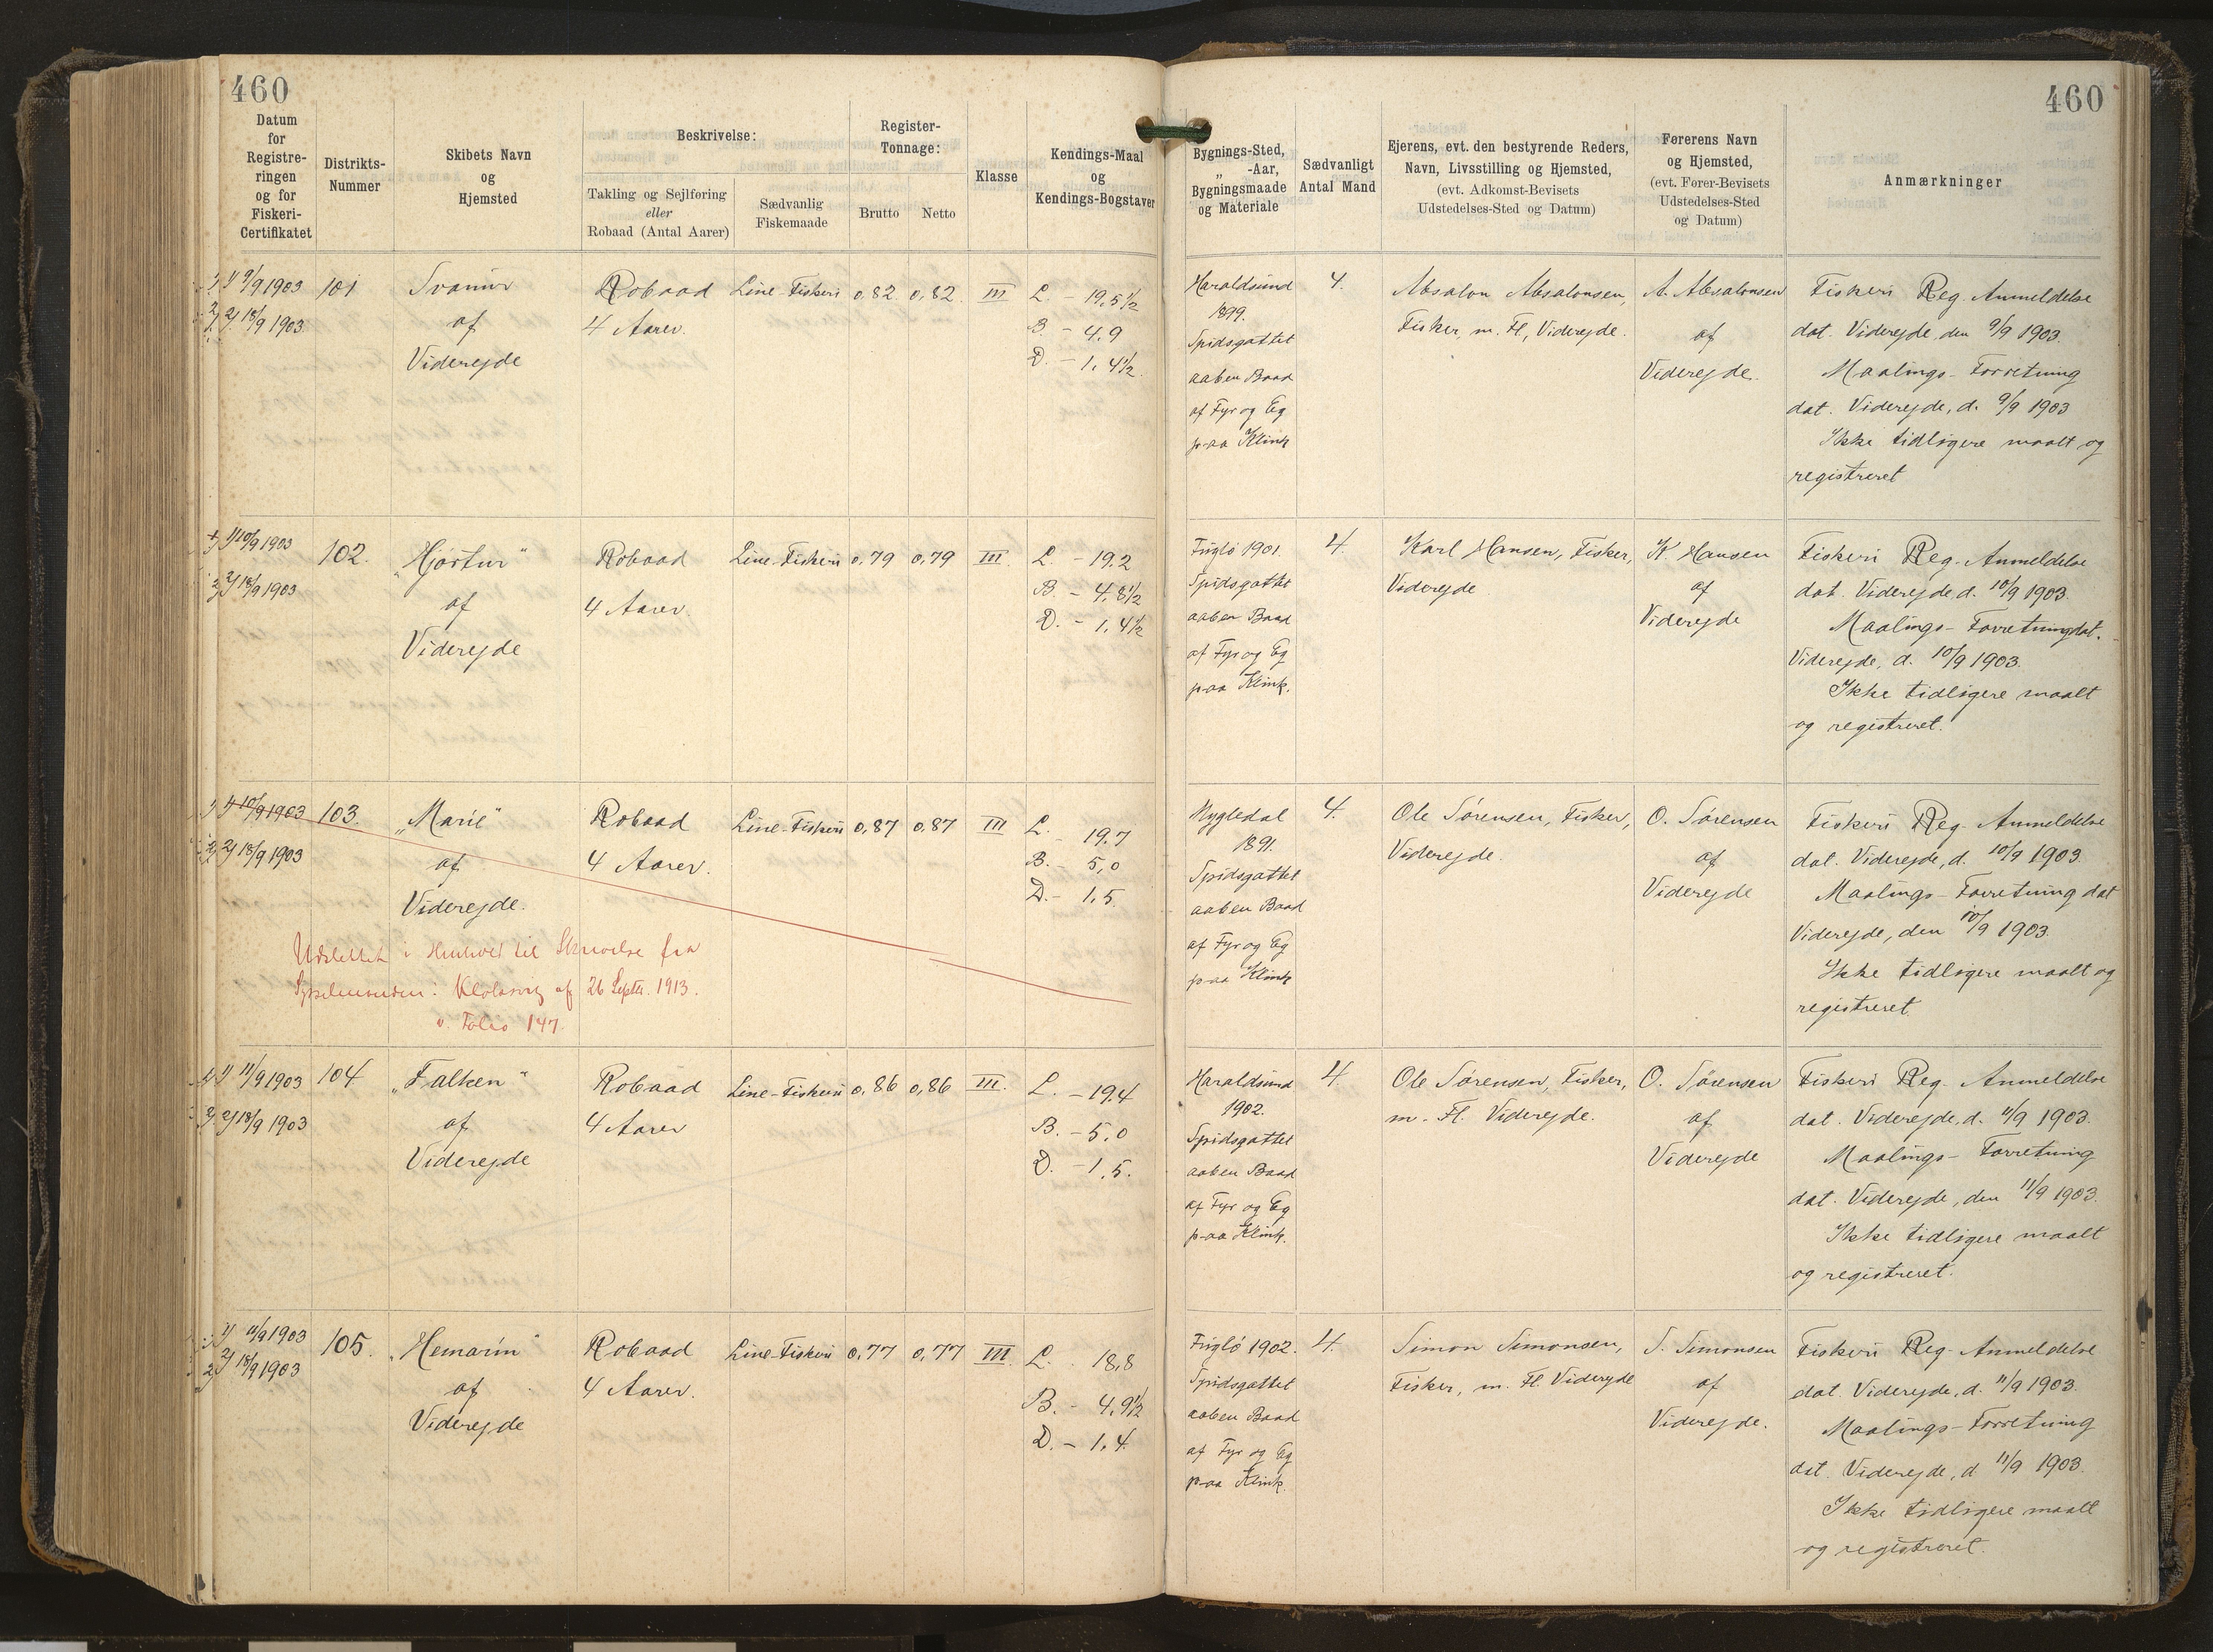 460
460
Datum for Registreringen og for Fiskeri-Certifikatet
Distrikts-Nummer
Skibets Navn og Hjemsted
Beskrivelse:
Takling og Sejlføring eller Robaad (Antal Aarer)
Sædvanlig Fiskemaade
Register-Tonnage:
Brutto
Netto
Klasse
Kendings-Maal og Kendings-Bogstaver
Bygnings-Sted, „ -Aar, Bygningsmaade og Materiale
Sædvanligt Antal Mand
Ejerens, evt. den bestyrende Reders, Navn, Livsstilling og Hjemsted, (evt. Adkomst-Bevisets Udstedelses-Sted og Datum)
Førerens Navn og Hjemsted, (evt. Fører-Bevisets Udstedelses-Sted og Datum)
Anmærkninger
1) 9/9 1903
2) 18/9 1903
101
Svanur
af
Viderejde
Robaad
4 Aarer.
Line-Fiskeri
0,82
0,82
III
L. - 19,5½
B - 4,9
D. - 1,4½
Haraldsund
1899.
Spidsgattet
aaben Baad
af Fyr og Eg
paa Klink
4.
Absalon Absalonsen,
Fisker, m. Fl., Viderejde.
A. Absalonsen
af
Viderejde.
Fiskeri Reg. Anmeldelse
dat. Viderejde, den 9/9 1903.
Maalings-Forretning
dat. Viderejde, d. 9/9 1903
Ikke tidligere maalt og
registreret
1) 10/9 1903
2) 18/9 1903
102.
„Hjørtur“
af
Viderejde
Robaad
4 Aarer.
Line-Fiskeri
0,79
0,79
III.
L. - 19.2
B. - 4,8½
D. - 1,4½
Fuglø 1901.
Spidsgattet
aaben Baad
af Fyr og Eg
paa Klink.
4.
Karl Hansen, Fisker,
Viderejde
K Hansen
af
Viderejde
Fiskeri Reg. Anmeldelse
dat. Viderejde d. 10/9 1903.
Maalings-Forretning dat.
Viderejde, d. 10/9 1903.
Ikke tidligere maalt
og registreret.
1) 10/9 1903
2) 18/9 1903
103.
„Marie“
af
Viderejde.
Robaad
4 Aarer.
Line-Fiskeri
0,87
0,87
III
L. - 19.7
B. - 5,0
D. - 1,5
Udslettet i Henhold til Skrivelse fra
Sysselmanden i Klaksvig af 26 Septbr. 1913.
v. Folio 147.
1891.
Spidsgattet
aaben Baad
af Fyr og Eg
paa Klink
4.
Ole Sørensen, Fisker,
Viderejde.
O. Sørensen
af
Viderejde
Fiskeri Reg. Anmeldelse
dat. Viderejde, d. 10/9 1903.
Maalings-Forretning dat
Viderejde, den 10/9 1903.
Ikke tidligere maalt og
registreret.
1) 11/9 1903
2) 18/9 1903
104
„Falken“
af
Viderejde
Robaad
4 Aarer
Line-Fiskeri
0,86
0,86
III.
L. - 19,4
B. - 5,0
D. - 1,5.
Haraldsund
1902.
Spidsgattet
aaben Baad
af Fyr og Eg
paa Klink.
4.
Ole Sørensen, Fisker,
m. Fl. Viderejde.
O. Sørensen
af
Viderejde
Fiskeri Reg. Anmeldelse
dat. Viderejde, d. 11/9 1903.
Maalings-Forretning
dat. Viderejde, den 11/9 1903.
Ikke tidligere maalt
og registreret.
1) 11/9 1903
2) 18/9 1903
105.
„Hemarin“
af
Viderejde
Robaad
4 Aarer.
Line-Fiskeri
0,77
0,77
III.
L. - 18,8
B. - 4,9½
D. - 1,4
Fuglø 1902.
Spidsgattet
aaben Baad
af Fyr og Eg
paa Klink.
4.
Simon Simonsen,
Fisker, m. Fl. Viderejde
S. Simonsen
af
Viderejde.
Fiskeri Reg. Anmeldelse
dat. Viderejde, d. 11/9 1903.
Maalings-Forretning
dat. Viderejde, d 11/9 1903.
Ikke tidligere maalt
og registreret.